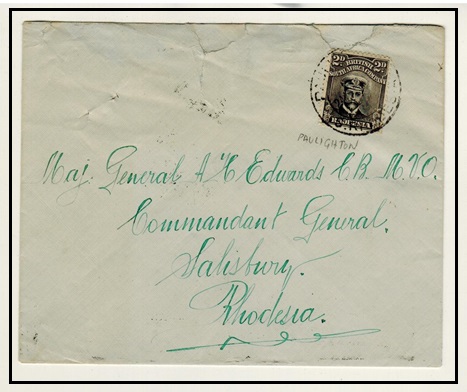 2D. BRITISH 2D.
SOUTH AFRICA COMPANY
RHODESIA
PAULIGHTON
Maj. General A H C Edwards C.B. M.V.O.
Commandant General.
Salisbury.
Rhodesia.